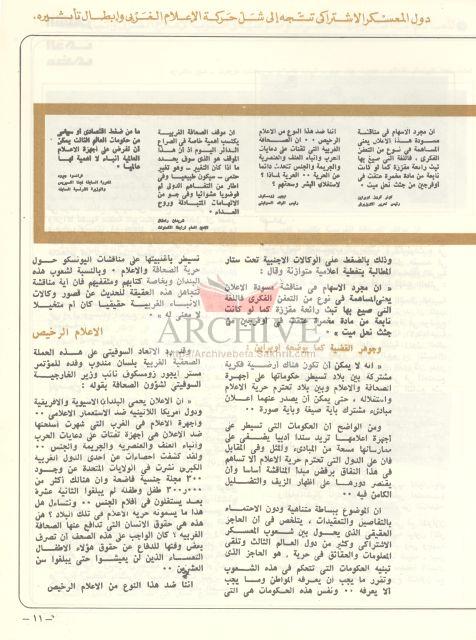 دول المعسكر الاشتراكي تتجه إلى شل حركة الإعلام الغربي وابطال تأثيره.
ان مجرد الاسهام في مناقشة
مسودة هذا الاعلان يعني
المساهمة في نوع من التعفن
الفكري ، فاللغة التي صيغ بها
تبث رائحة مقززة كما لو كانت
نابعة من مادة مخمرة عتقت في
اوفرجين من جثث نحل ميت •
اننا ضد هذا النوع من الاعلام
الرخيص •• ان الصحافة
الغربية التي تقتات على دعايات
الحرب وأنباء العنف والعنصرية
والجريمة والجنس تتحدث دائما
عن الحرية •• الحرية لماذا ؟
لاستغلال البشر وسحقهم ؟
ان موقف الصحافة الغربية
يكتسب أهمية خاصة في الصراع
الدائر اليوم اذ أن هذا
الموقف هو الذي سوف يحدد
ما اذا كان التغيير ــ وهو تغيير
حتمي ــ سيكون طبيعيا وفي
اطار من التفاهم الدولي أم
فوضويا عشوائيا وفي جو من
الاتهامات المتبادلة وروح
العداء •
ما من ضغط اقتصادي أو سياسي
من حكومات العالم الثالث يمكن
أن تفرض على أجهزة الاعلام
العالمية أنباء لا أهمية لها
عالميا •
وذلك بالضغط على الوكالات الاجنبية تحت ستار
المطالبة بتغطية اعلامية متوازنة وقال :
« ان مجرد الاسهام في مناقشة مسودة الاعلان
يعني المساهمة في نوع من التعفن الفكري فاللغة
التي صيغ بها تبث رائحة مقززة كما لو كانت
نابعة من مادة مخمرة عتقت في اوفرجين من
جثث نحل ميت » •
وجوهر القضية كما يوضحه اوبراين :
« انه لا يمكن أن تكون هناك أرضية فكرية
مشتركة بين بلاد تسيطر حكوماتها على أجهزة
الصحافة والاعلام وبين بلاد تحترم حرية الاعلام
واستقلاله ، حتى يمكن أن يصدر عنهما اعلان
مبادىء مشترك بأية صيغة وبأية صورة ••
ومن الواضح أن الحكومات التي تسيطر على
أجهزة اعلامها تريد سندا أدبيا يضفي على
ممارساتها مسحة من المبادىء والمثل وفي المقابل
فان على الدول التي تحترم حرية الاعلام ألا تساهم
في هذا النفاق برفض مبدأ المناقشة أساسا وأن
يقتصر دورها على اظهار الزيف والتضليل
الكامن فيه ••
ان الموضوع ببساطة متناهية ودون الاحتماء
بالتفاصيل والتعقيدات ، يتلخص في أن الحاجز
الحقيقي الذي يحول بين شعوب المعسكر
الاشتراكي وكثير من دول العالم الثالث وتلقي
المعلومات والحقائق في حرية ، هو الحاجز الذي
تبنيه الحكومات التي تتحكم في هذه الشعوب
وتقرر ما يجب أن يعرفه المواطن وما يجب
ألا يعرفه •• ونفس هذه الحكومات هي التي
تسيطر بأغلبيتها على مناقشات اليونسكو حول
حرية الصحافة والاعلام • وبالنسبة لشعوب هذه
البلدان وبخاصة كتابهم ومثقفيهم فان أية مناقشة
تتجاهل هذه الحقيقة للحديث عن قصور وكالات
الأنباء الغربية حقيقيا كان أم متخيلا
لا معنى له » •
الاعلام الرخيص
وقد رد الاتحاد السوفيتي على هذه الحملة
الصحفية الغربية بلسان مندوب وفده للمؤتمر
مستر ايجور زومسكوف نائب وزير الخارجية
السوفيتي لشؤون الصحافة بقوله :
« ان الاعلان يحمي البلدان الآسيوية والافريقية
ودول أمريكا اللاتينية ضد الاستعمار الاعلامي ••
وأجهزة الاعلام في الغرب التي شهرت أسلحتها
ضد الاعلان هي أجهزة تقتات على دعايات الحرب
وأنباء العنف والعنصرية والجريمة والجنس ••
ولقد كشفت احصاءات عن احدى الدول الغربية
الكبرى نشرت في الولايات المتحدة عن وجود
٣٠٠ مجلة جنسية فاضحة وأن هنالك أكثر من
٣٠٠٫٠٠٠ طفل وطفلة لم يبلغوا الثانية عشرة
بعد يستغلون في أفلام الجنس •• ونتساءل هل
هذا ما يسمونه حرية الاعلام في تلك البلاد ؟ هل
هذه هي حقوق الانسان التي تدافع عنها الصحافة
الغربية ؟ كان الواجب على هذه الصحف أن تصرف
بعض وقتها للدفاع عن حقوق هؤلاء الاطفال
التعساء الذين لن يعيشوا حتى يبلغوا سن
العشرين ••
اننا ضد هذا النوع من الاعلام الرخيص
ــ ١١ ــ
ARCHIVE
http://Archivebeta.Sakhrit.com